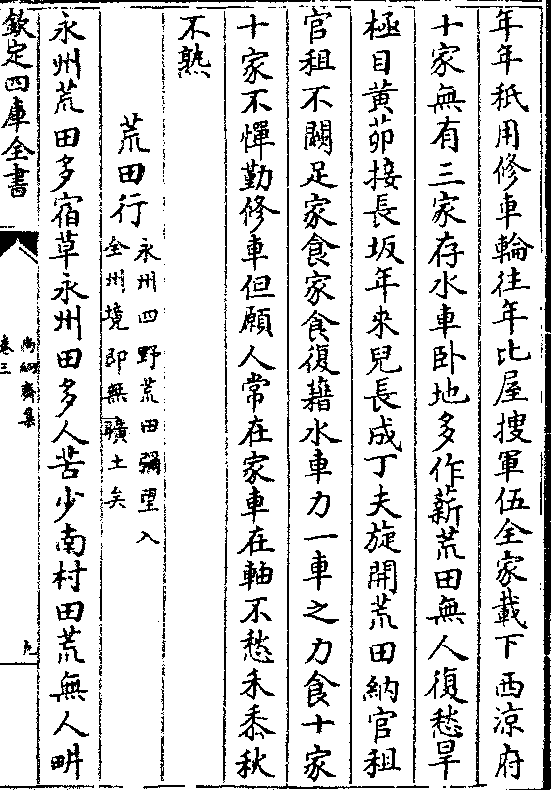 年年秖用修車輪往年比屋搜軍伍全家載下西涼府
十家無有三家存水車卧地多作薪荒田無人復愁旱
極目黄茆接長坂年来兒長成丁夫旋開荒田納官租
官租不闕足家食家食復藉水車力一車之力食十家
十家不憚勤修車但願人常在家車在軸不愁禾黍秋
不熟
荒田行
永州四野荒田彌望入
全州境即無曠土矣
永州荒田多宿草永州田多人苦少南村田荒無人畊
欽定四庫全書
卷三
九